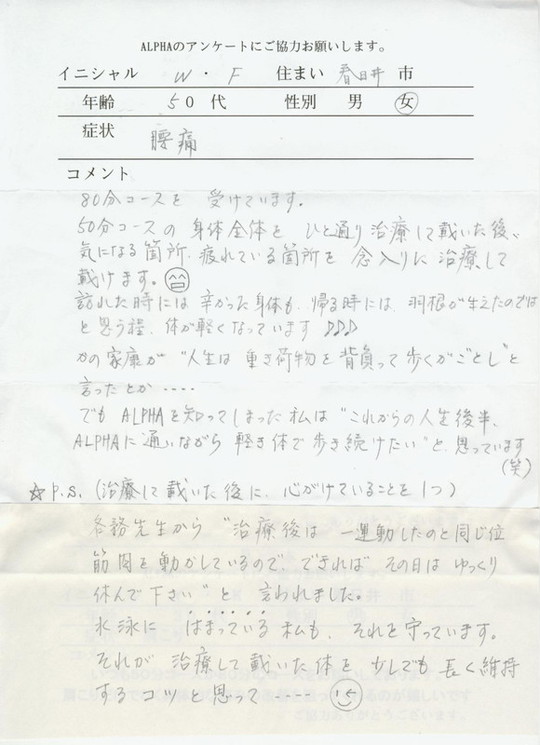 ALPHAのアンケートにご協力お願いします。
イニシャル W・F 住まい 春日井 市
年齢 50 代 性別 男 女
症状 腰痛
コメント
80分コースを 受けています。
50分コースの 身体全体を ひと通り治療して戴いた後、
気になる箇所、疲れている箇所を 念入りに 治療して
戴けます。
訪れた時には 辛かった身体も、帰る時には、羽根が生えたのでは
と思う程、体が軽くなっています♪♪♪
かの家康が "人生は 重き荷物を背負って歩くがごとし"と
言ったとか ‥‥
でも ALPHAを知ってしまった私は "これからの人生後半、
ALPHAに通いながら 軽き体で歩き続けたい"と、思っています
(笑)
☆P.S. (治療して戴いた後に、心がけていることを1つ)
各務先生から "治療後は 一運動したのと同じ位
筋肉を動かしているので、できれば その日は ゆっくり
休んで下さい"と 言われました。
水泳に はまっている私も、それを守っています。
それが 治療して戴いた体を 少しでも 長く維持
するコツと思って ‥‥